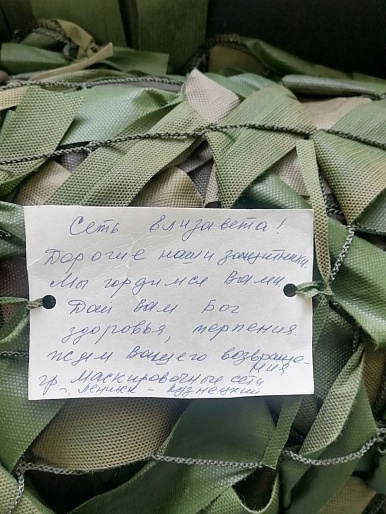 Сеть Елизавета!
Дорогие наши защитники
Мы гордимся Вами
Дай вам Бог
здоровья, терпения
ждем Вашего возвраще-
ния
гр. Маскировочные сети
г. Ленинск-Кузнецкий